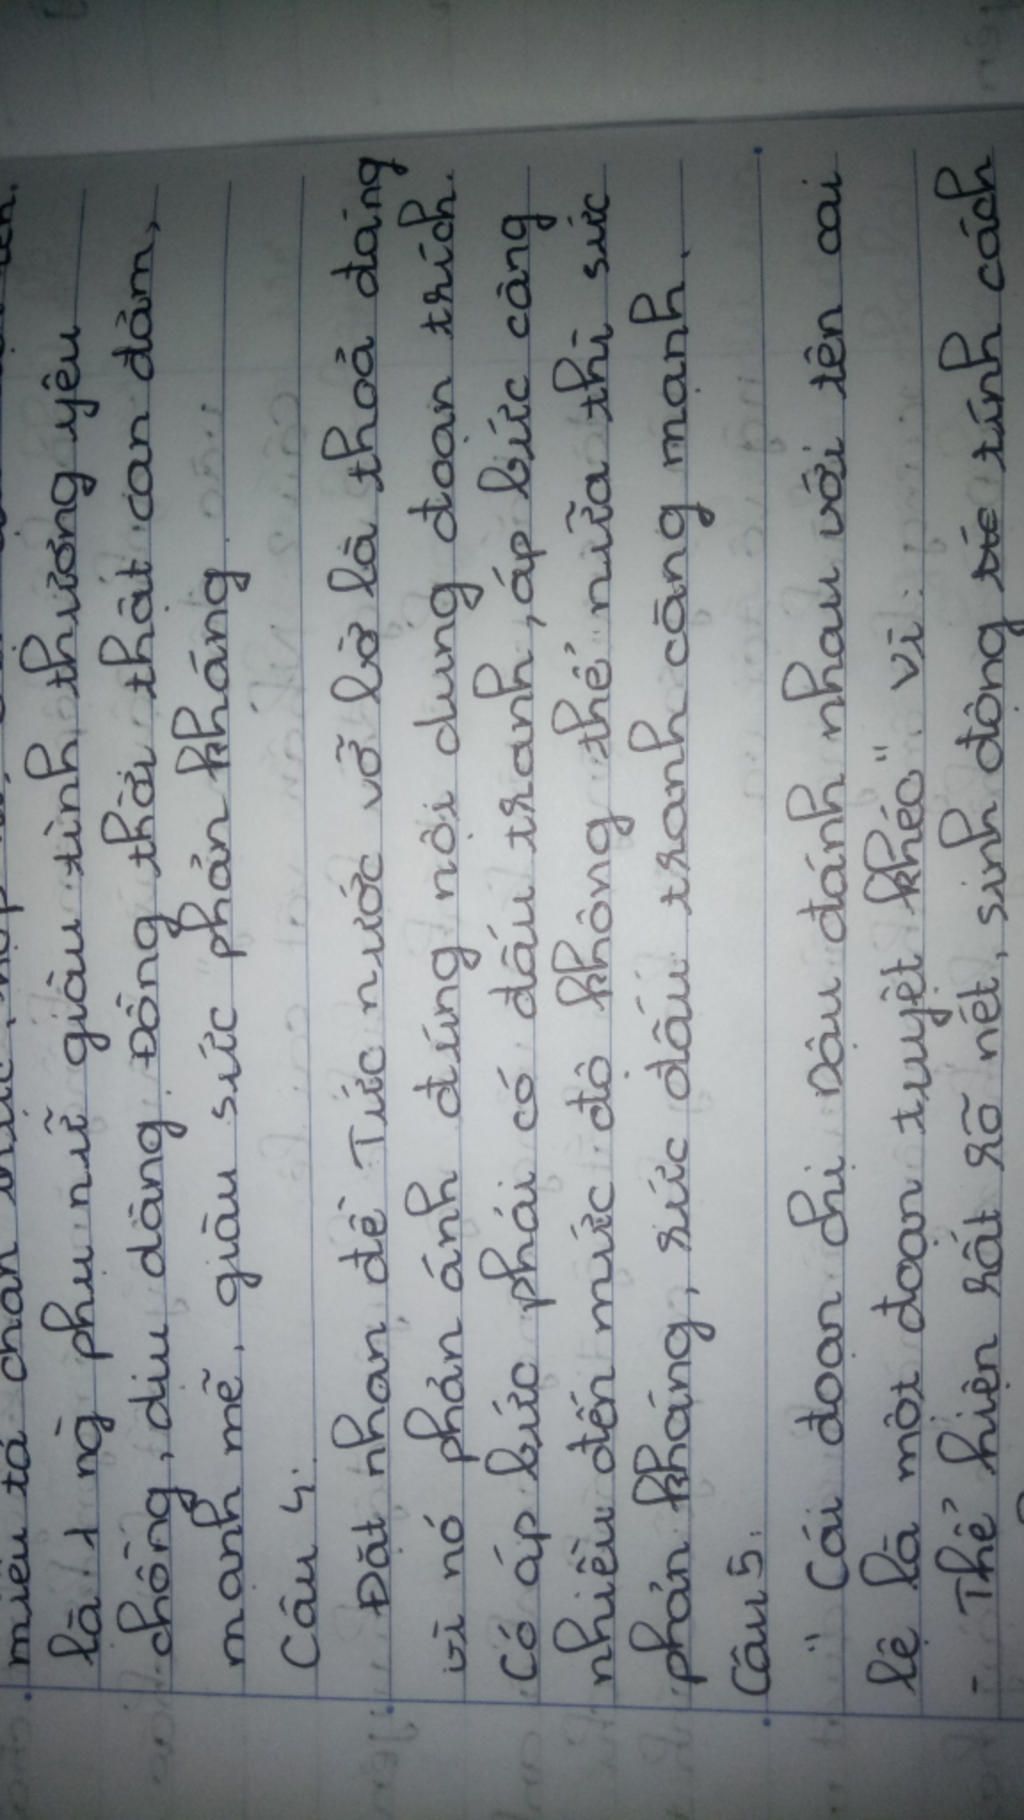 miêu tả chân thực,
là 1 ng` phụ nữ giàu tình thương yêu
chồng, dịu dàng. Đồng thời thật can đảm,
mạnh mẽ, giàu sức phản kháng
Câu 4:
Đặt nhan đề Tức nước vỡ bờ là thoả đáng
vì nó phản ánh đúng nội dung đoạn trích.
Có áp bức phải có đấu tranh, áp bức càng
nhiều đến mức độ không thể nữa thì sức
phản kháng, sức đấu tranh càng mạnh.
Câu 5:
" Cái đoạn chị Dậu đánh nhau với tên cai
lệ là một đoạn tuyệt khéo". Vì:
- Thể hiện rất rõ nét, sinh động tính cách